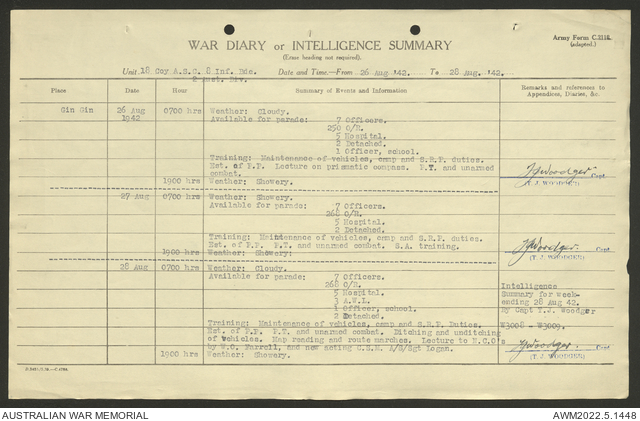 Army Form C.2118.
(adapted.)
WAR DIARY or INTELLIGENCE SUMMARY
(Erase heading not required).
Unit 18 Coy A.S.C. 8 Inf. Bde. Date and Time.—From 26 Aug '42. To 28 Aug '42.
Place Date Hour Summary of Events and Information Remarks and references to
Appendices, Diaries, &c.
Gin Gin 26 Aug 0700 hrs Weather: Cloudy.
1942 Available for parade: 7 Officers.
250 O/R.
5 Hospital.
2 Detached.
1 Officer, school.
Training: Maintenance of vehicles, camp and S.R.P. duties.
Est. of P.P. Lecture on prismatic compass. P.T. and unarmed
combat.
TJWoodger Capt
(T.J. WOODGER)
1900 hrs Weather: Showery.
27 Aug 0700 hrs Weather: Showery.
Available for parade: 7 Officers.
268 O/R.
5 Hospital.
2 Detached.
Training: Maintenance of vehicles, camp and S.R.P. duties.
Est. of P.P. P.T. and unarmed combat. S.A. training.
1900 hrs Weather: Showery.
TJWoodger. Capt
(T.J. WOODGER)
28 Aug 0700 hrs Weather: Cloudy.
Available for parade: 7 Officers.
268 O/R.
5 Hospital.
3 A.W.L.
1 Officer, school.
2 Detached.
Intelligence
Summary for week-
ending 28 Aug 42.
By Capt T.J. Woodger
W3008 - W3009.
Training: Maintenance of vehicles, camp and S.R.P. Duties.
Est. of P.P. P.T. and unarmed combat. Ditching and unditching
of vehicles. Map reading and route marches. Lecture to N.C.O's
by W.O. Farrell, and new acting C.S.M. A/S/Sgt Logan.
1900 hrs Weather: Showery.
TJWoodger. Capt
(T.J. WOODGER)
AUSTRALIAN WAR MEMORIAL
AWM2022.5.1448